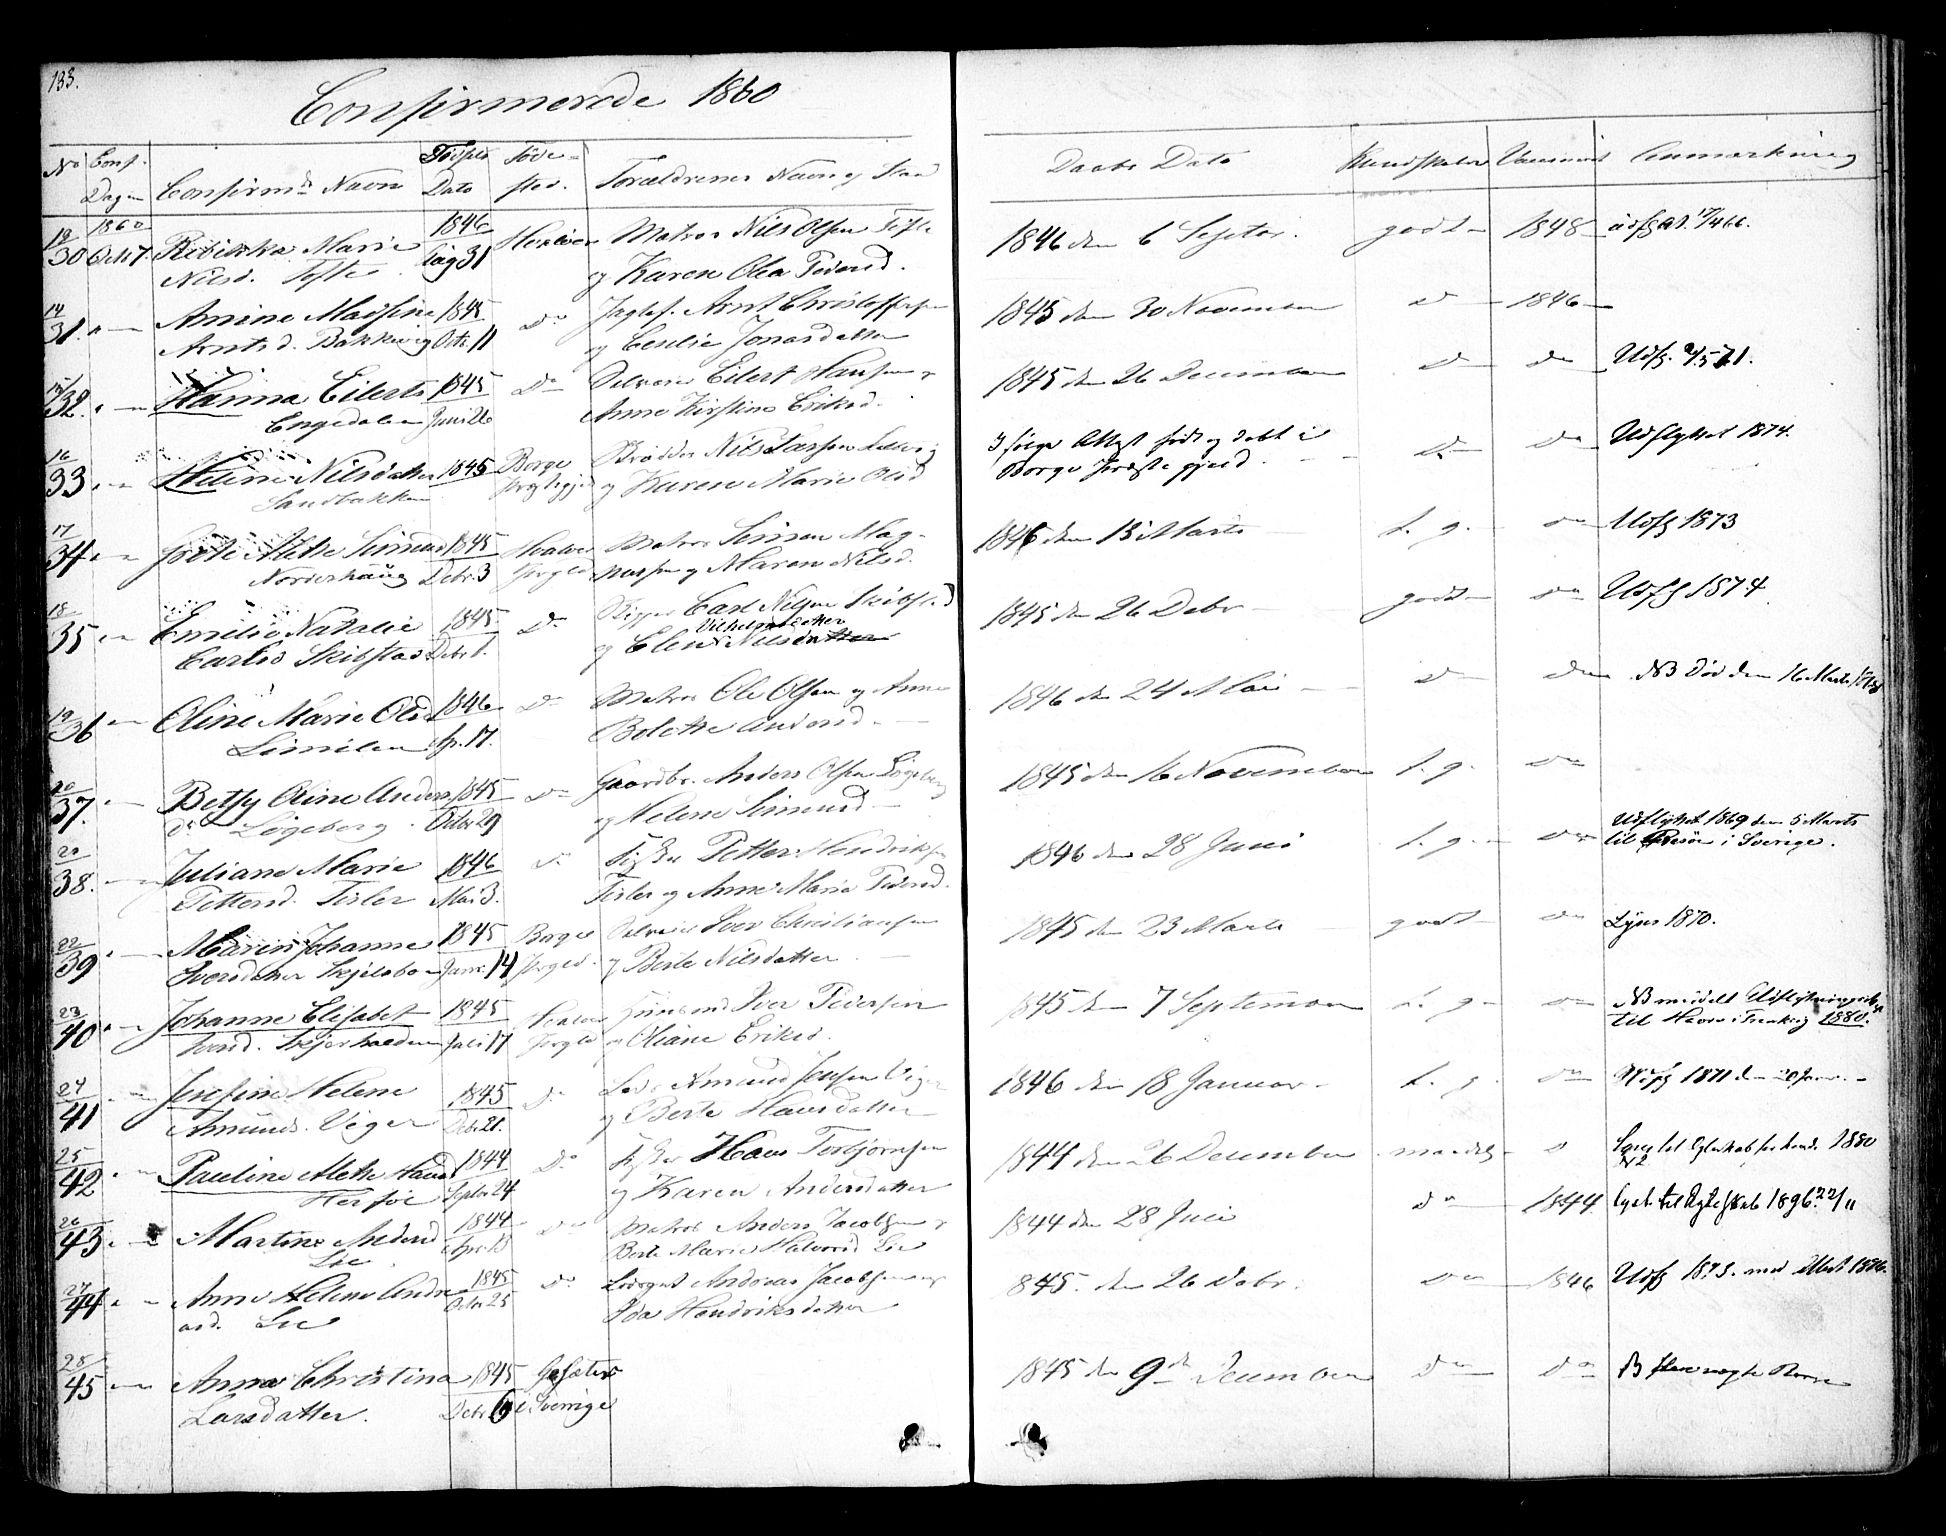 133.
Confirmerede 1860
No Conf. Dagen Confirmds Navn Fødsels Dato Føde-sted. Forældrenes Navn og Stand Daabs Dato Kundskaber Vaccineret Anmærkning
13/30 1860 Oct 7. Marie 1846 Aug 31 Hvaler Matros Nils Olsen Tofte 1846 den 6 Septbr. godt 1848 udfg at 17/4 66.
Nilsd. Tofte og Karen Olea Pedersd.
14/31. Amine Madsine 1845 Do Arnt Christoffersen 1845 den 30 November do 1846
Arntsd. Bakkevig Octb 11 og Cecilie Jonasdatter
15/32. Hanna Eilerts 1845 Do Eilert Hansen og 1845 den 26 December do do
Engedalen Juni 26 Anne Kirstine Eriksd.
16/33 Helene Nilsdatter 1845 Borge Nils Larsen do do Udflyttet 1874.
Sandbakken Præstegjeld og Karen Marie Olsd Borge Præstegjeld.
17/34 Mette Simens 1845 Hvaler Matros Simen Mag- 1846 den 15 Marts t. g. do Udfg 1873
Norderhaug Debr. 3 Prgjeld nussen og Maren Nilsd.
18/35 Emilie Natalie 1845 Do Skipper Carl Nilsen Skibstad 1845 den 26 Debr godt do Udfg 1874
Carlsd Skibstad Debr 1. og Elen Nilsdatter
Vilhelmsdatter
19/36 Oline Marie Olsd 1846 Do Matros Ole Olsen og Anne 1846 den 24 Mai do do NB Død den 16 Marts
Apr. 17. Bolette Andersd.
20/37. Betsy Oline Anders 1845 Do Gaardbr. Anders Olsen Løgeberg 1845 den 16 November t. g. do
dr Løgeberg Octbr 29 og Helene Simensd
21/38. Juliane Marie 1846 do Petter Hendriksen 1846 den 28 Juni t. g. do Udflyttet 1869 den 5 Marts
Pettersd. Tisler Mai 3. Tisler og Anne Marie Pedersd. til Resön i Sverige.
22/39 Maren Johanne 1845 Borge Iver Christiansen 1845 den 23 Marts godt do Lyst 1870.
Iversdatter Skjelsbo Janr. 14 Prgjld. og Berte Nilsdatter
23/40 Johanne Elisabet 1845 Hvaler Huusmand Iver Pedersen 1845 den 7 September t. g. do NB meddelt Udflytningsatt
Iversd. Skjærhalden Juli 17 Prgjld og Oliane Eriksd. til Havre i Frankrig 1880.
24/41 Josefine Helene 1845 Do Lods Amund Jensen Viger 1846 den 18 Januar t. g. do Udfg 1871 den 20 Janr.
Amunds. Viger Debr 21. og Berte Hansdatter
25/42 Pauline Mette Hansd 1844 Do Hans Torbjørnsen 1844 den 26 December maadelig do Lyst til Ægteskab 1880
Herføl Septbr 24 og Karen Andersdatter
26/43 Martine Andersd 1844 Do Matros Anders Jacobsen og 1844 den 28 Juli do 1844 Lyst til Ægteskab 1896 22/11
Lie. Apr. 13 Berte Marie Halvorsd Lie
27/44 Anne Helene Andre 1845 Do Andreas Jacobsen og 1845. den 26 Debr. do 1846 Udfg 1873. med Attest
asd. Lie Octbr 25 Ida Hendriksdatter
28/45 Anna Christina 1845 1845 den 9de December do do
Larsdatter. Debr 6 i Sverrige